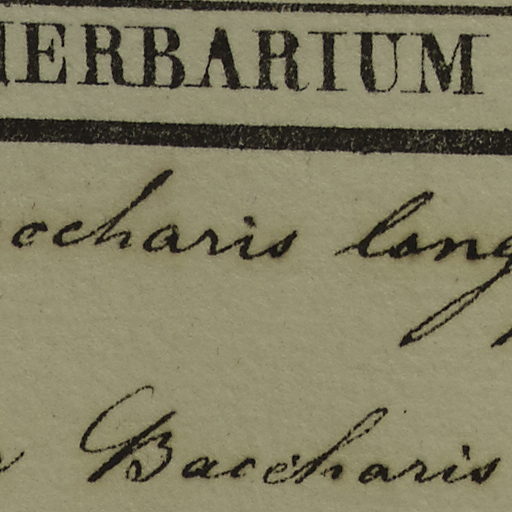 HERBARIUM
ccharis long
Baccharis